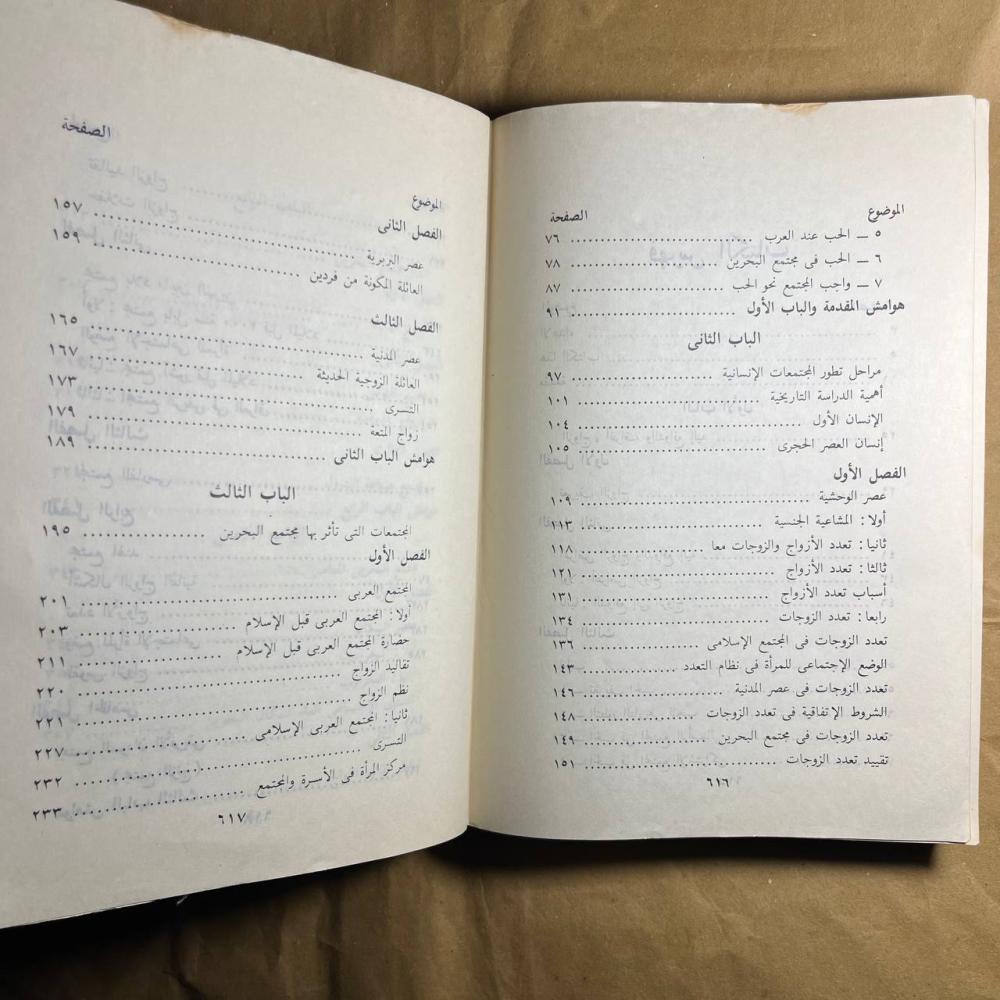 الموضوع الصفحة
٥ ـ الحب عند العرب ........ ٧٦
٦ ـ الحب فى مجتمع البحرين ........ ٧٨
٧ ـ واجب المجتمع نحو الحب ........ ٨٧
هوامش المقدمة والباب الأول ........ ٩١
الباب الثانى
مراحل تطور المجتمعات الإنسانية ........ ٩٧
أهمية الدراسة التاريخية ........ ١٠١
الإنسان الأول ........ ١٠٤
إنسان العصر الحجرى ........ ١٠٥
الفصل الأول
عصر الوحشية ........ ١٠٩
أولا: المشاعية الجنسية ........ ١١٣
ثانيا: تعدد الأزواج والزوجات معا ........ ١١٨
ثالثا: تعدد الأزواج ........ ١٢١
أسباب تعدد الأزواج ........ ١٣١
رابعا: تعدد الزوجات ........ ١٣٤
تعدد الزوجات فى المجتمع الإسلامى ........ ١٣٦
الوضع الإجتماعى للمرأة فى نظام التعدد ........ ١٤٣
تعدد الزوجات فى عصر المدنية ........ ١٤٦
الشروط الإتفاقية فى تعدد الزوجات ........ ١٤٨
تعدد الزوجات فى مجتمع البحرين ........ ١٤٩
تقييد تعدد الزوجات ........ ١٥١
٦١٦
الموضوع الصفحة
الفصل الثانى ........ ١٥٧
عصر البربرية ........ ١٥٩
العائلة المكونة من فردين
الفصل الثالث ........ ١٦٥
عصر المدنية ........ ١٦٧
العائلة الزوجية الحديثة ........ ١٧٣
التسرى ........ ١٧٩
زواج المتعة ........ ١٨٩
هوامش الباب الثانى
الباب الثالث
المجتمعات التى تأثر بها مجتمع البحرين ........ ١٩٥
الفصل الأول
المجتمع العربى ........ ٢٠١
أولا: المجتمع العربى قبل الإسلام ........ ٢٠٣
حضارة المجتمع العربى قبل الإسلام ........ ٢١١
تقاليد الزواج ........ ٢٢٠
نظم الزواج ........ ٢٢١
ثانيا: المجتمع العربى الإسلامى ........ ٢٢٧
التسرى ........ ٢٣٢
مركز المرأة فى الأسرة والمجتمع ........ ٢٣٣
٦١٧